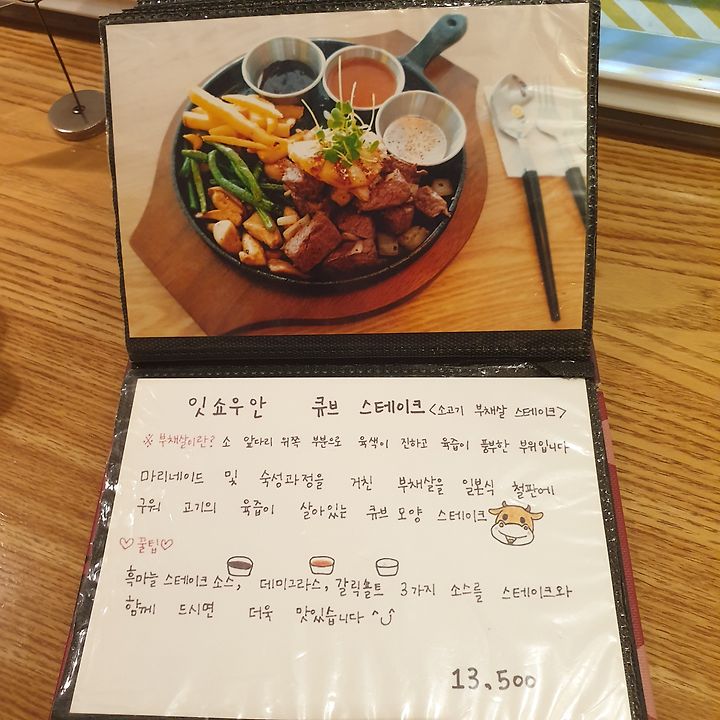 잇쇼우안 큐브 스테이크 <소고기 부채살 스테이크>
※ 부채살이란? 소 앞다리 위쪽 부분으로 육색이 진하고 육즙이 풍부한 부위입니다
마리네이드 및 숙성과정을 거친 부채살을 일본식 철판에
구워 고기의 육즙이 살아있는 큐브 모양 스테이크
♡꿀팁♡
흑마늘 스테이크 소스, 데미그라스, 갈릭솔트 3가지 소스를 스테이크와
함께 드시면 더욱 맛있습니다 ^^
13.500